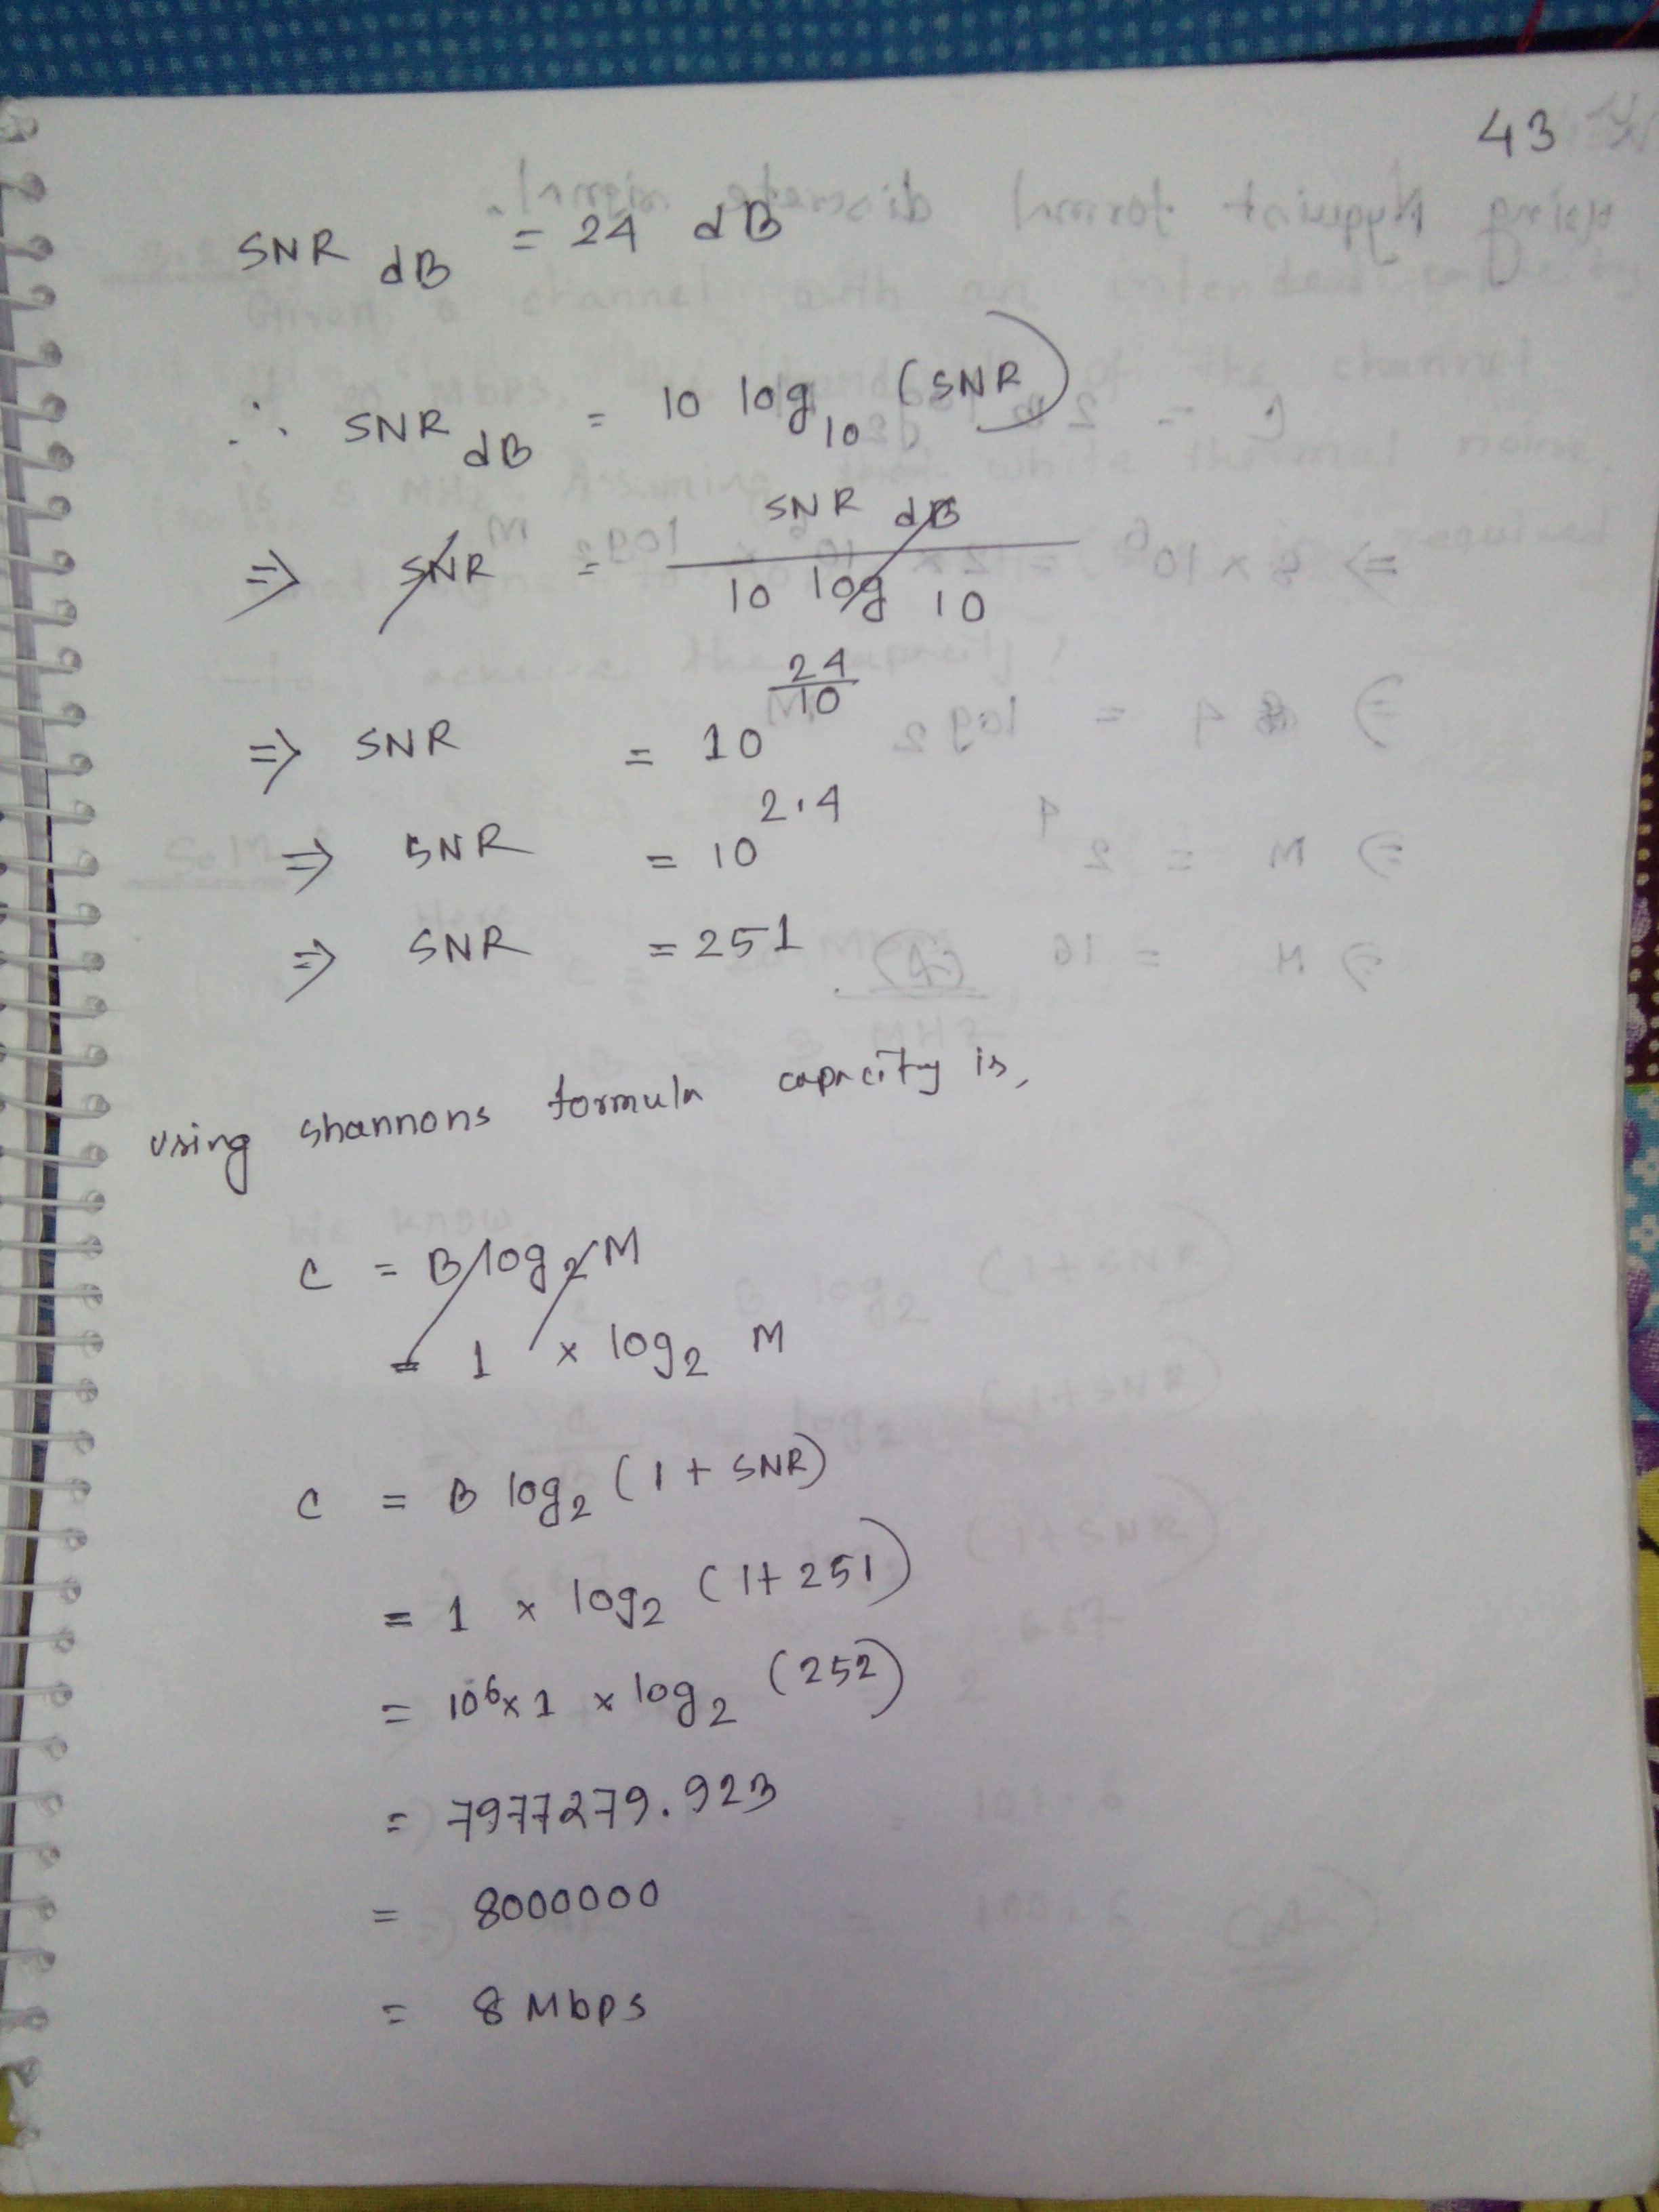 43
SNR dB = 24 dB
∴ SNR dB = 10 log10 (SNR)
⇒ SNR = SNR dB / 10 log 10
⇒ SNR = 10^(24/10)
⇒ SNR = 10^2.4
⇒ SNR = 251
using shannons formula capacity is,
C = B log2 M
= 1 × log2 M
C = B log2 (1 + SNR)
= 1 × log2 (1 + 251)
= 10^6 × 1 × log2 (252)
= 7977279.923
= 8000000
= 8 Mbps